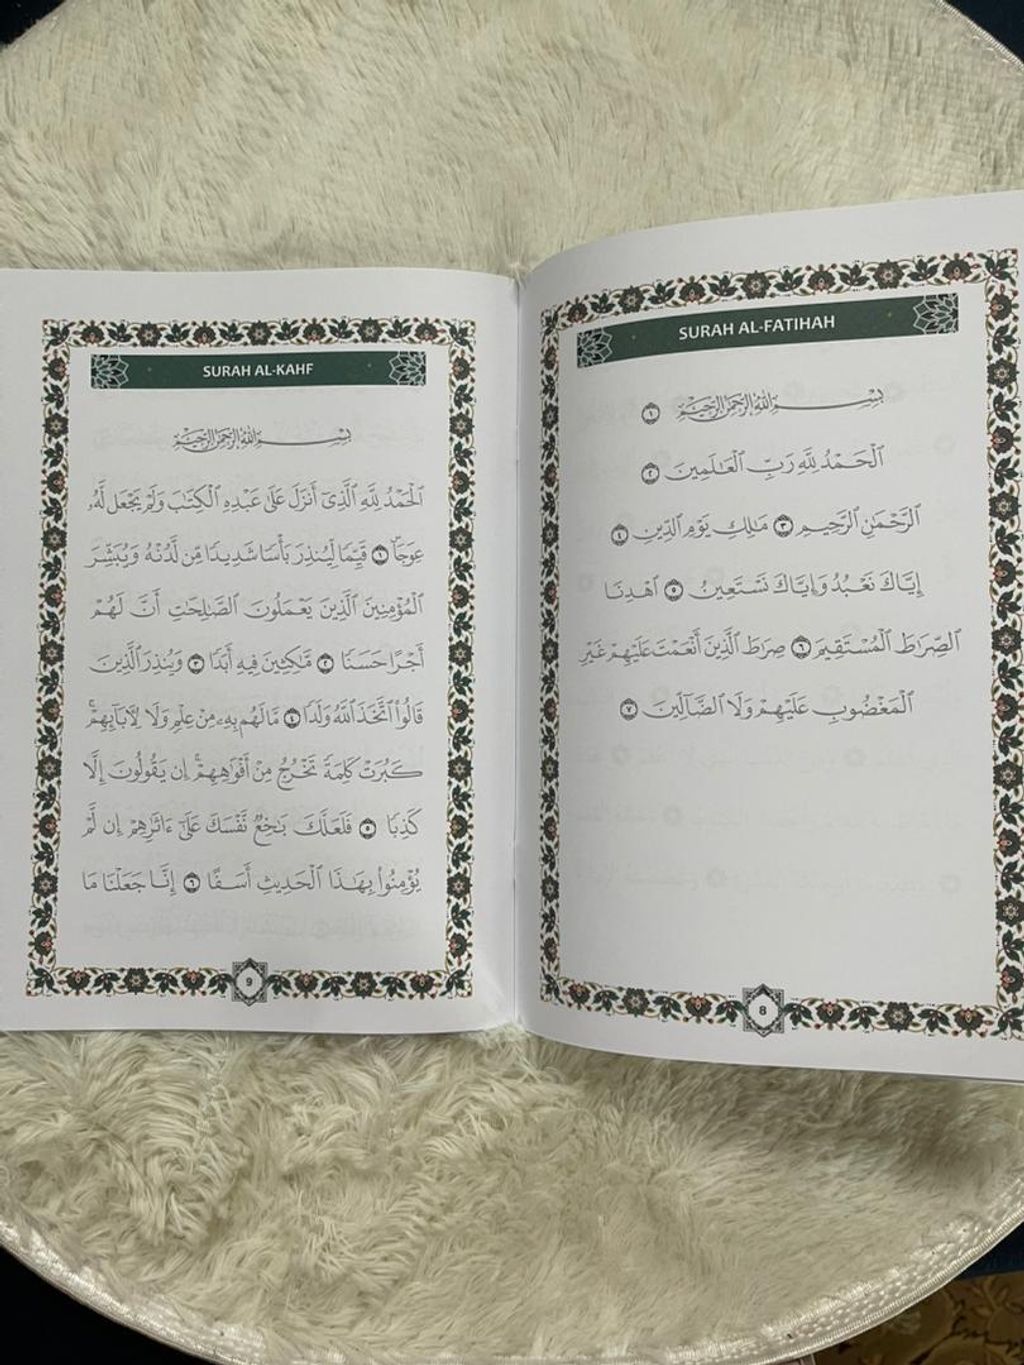 SURAH AL-FATIHAH
بِسْمِ ٱللَّهِ ٱلرَّحْمَٰنِ ٱلرَّحِيمِ ١
ٱلْحَمْدُ لِلَّهِ رَبِّ ٱلْعَٰلَمِينَ ٢
ٱلرَّحْمَٰنِ ٱلرَّحِيمِ ٣ مَٰلِكِ يَوْمِ ٱلدِّينِ ٤
إِيَّاكَ نَعْبُدُ وَإِيَّاكَ نَسْتَعِينُ ٥ ٱهْدِنَا
ٱلصِّرَٰطَ ٱلْمُسْتَقِيمَ ٦ صِرَٰطَ ٱلَّذِينَ أَنْعَمْتَ عَلَيْهِمْ غَيْرِ
ٱلْمَغْضُوبِ عَلَيْهِمْ وَلَا ٱلضَّآلِّينَ ٧
8
SURAH AL-KAHF
بِسْمِ ٱللَّهِ ٱلرَّحْمَٰنِ ٱلرَّحِيمِ
ٱلْحَمْدُ لِلَّهِ ٱلَّذِىٓ أَنزَلَ عَلَىٰ عَبْدِهِ ٱلْكِتَٰبَ وَلَمْ يَجْعَل لَّهُۥ
عِوَجَاۜ ١ قَيِّمًا لِّيُنذِرَ بَأْسًا شَدِيدًا مِّن لَّدُنْهُ وَيُبَشِّرَ
ٱلْمُؤْمِنِينَ ٱلَّذِينَ يَعْمَلُونَ ٱلصَّٰلِحَٰتِ أَنَّ لَهُمْ
أَجْرًا حَسَنًا ٢ مَّٰكِثِينَ فِيهِ أَبَدًا ٣ وَيُنذِرَ ٱلَّذِينَ
قَالُوا۟ ٱتَّخَذَ ٱللَّهُ وَلَدًا ٤ مَّا لَهُم بِهِۦ مِنْ عِلْمٍ وَلَا لِءَابَآئِهِمْ ۚ
كَبُرَتْ كَلِمَةً تَخْرُجُ مِنْ أَفْوَٰهِهِمْ ۚ إِن يَقُولُونَ إِلَّا
كَذِبًا ٥ فَلَعَلَّكَ بَٰخِعٌ نَّفْسَكَ عَلَىٰٓ ءَاثَٰرِهِمْ إِن لَّمْ
يُؤْمِنُوا۟ بِهَٰذَا ٱلْحَدِيثِ أَسَفًا ٦ إِنَّا جَعَلْنَا مَا
9